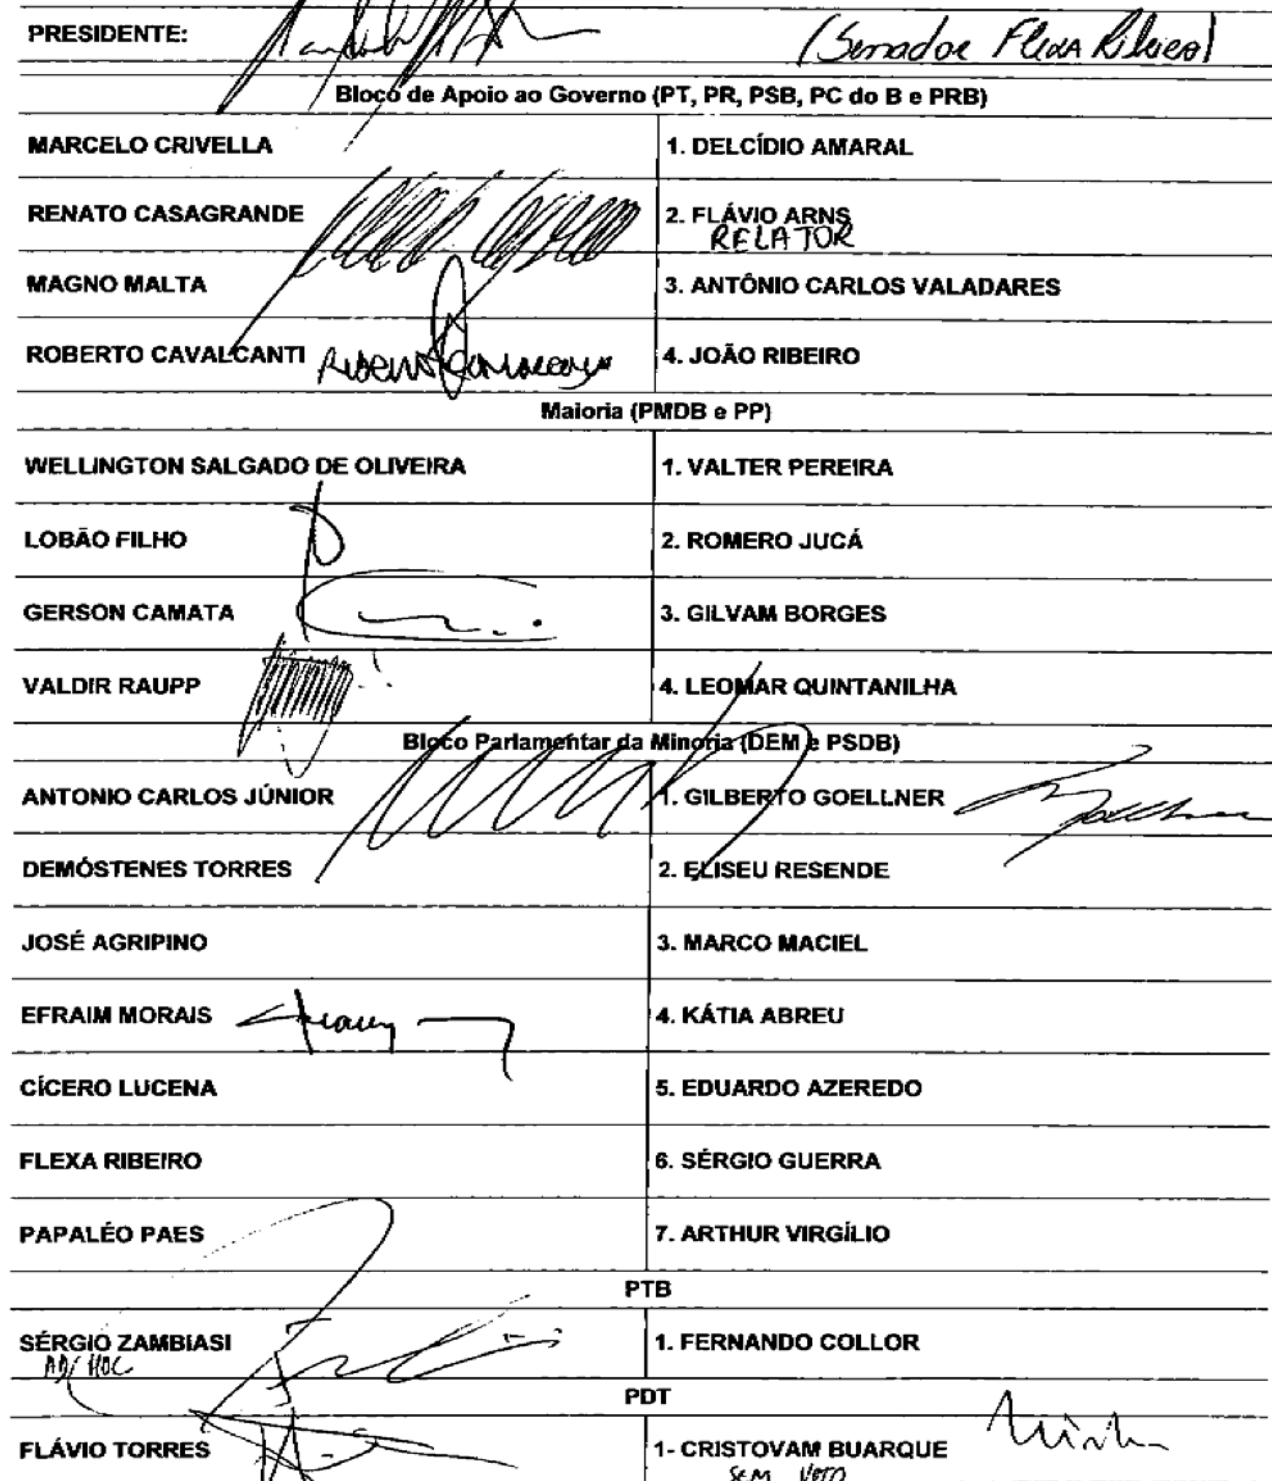 PRESIDENTE: (Senador Flexa Ribeiro)
Bloco de Apoio ao Governo (PT, PR, PSB, PC do B e PRB)
MARCELO CRIVELLA 1. DELCÍDIO AMARAL
RENATO CASAGRANDE 2. FLÁVIO ARNS
RELATOR
MAGNO MALTA 3. ANTÔNIO CARLOS VALADARES
ROBERTO CAVALCANTI 4. JOÃO RIBEIRO
Maioria (PMDB e PP)
WELLINGTON SALGADO DE OLIVEIRA 1. VALTER PEREIRA
LOBÃO FILHO 2. ROMERO JUCÁ
GERSON CAMATA 3. GILVAM BORGES
VALDIR RAUPP 4. LEOMAR QUINTANILHA
Bloco Parlamentar da Minoria (DEM e PSDB)
ANTONIO CARLOS JÚNIOR 1. GILBERTO GOELLNER
DEMÓSTENES TORRES 2. ELISEU RESENDE
JOSÉ AGRIPINO 3. MARCO MACIEL
EFRAIM MORAIS 4. KÁTIA ABREU
CÍCERO LUCENA 5. EDUARDO AZEREDO
FLEXA RIBEIRO 6. SÉRGIO GUERRA
PAPALÉO PAES 7. ARTHUR VIRGÍLIO
PTB
SÉRGIO ZAMBIASI 1. FERNANDO COLLOR
AD/HOC
PDT
FLÁVIO TORRES 1- CRISTOVAM BUARQUE
SEM VOTO